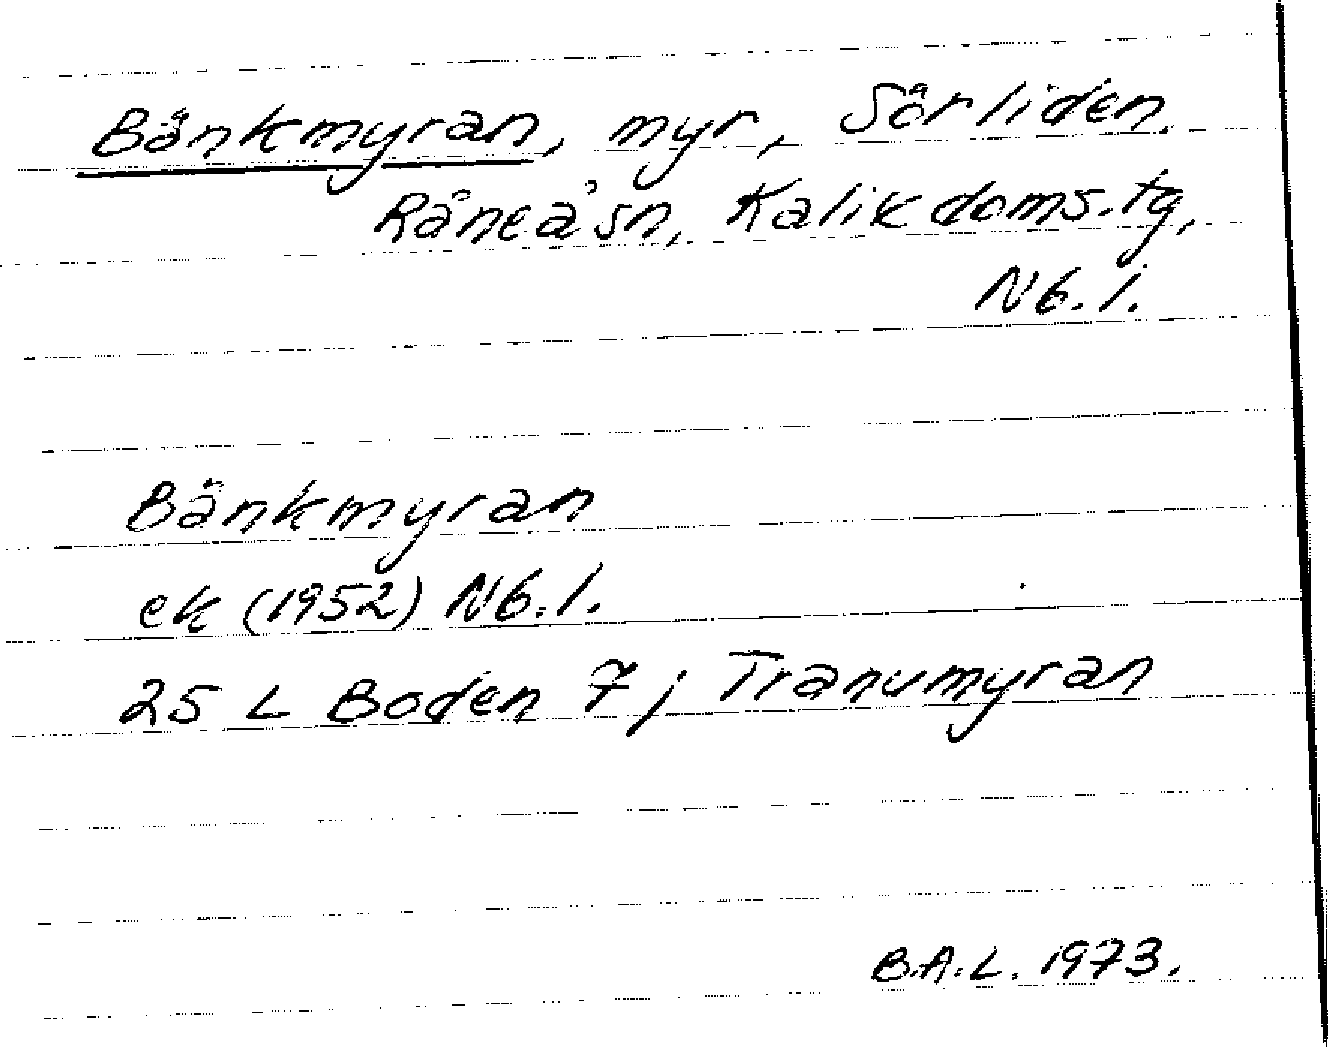 Bänkmyran, myr, Sörliden.
Råneå sn, Kalix doms.tg,
Nb. l.
Bänkmyran
ek (1952) Nb. l.
25 L Boden 7; Tranumyran
B.A.L. 1973.